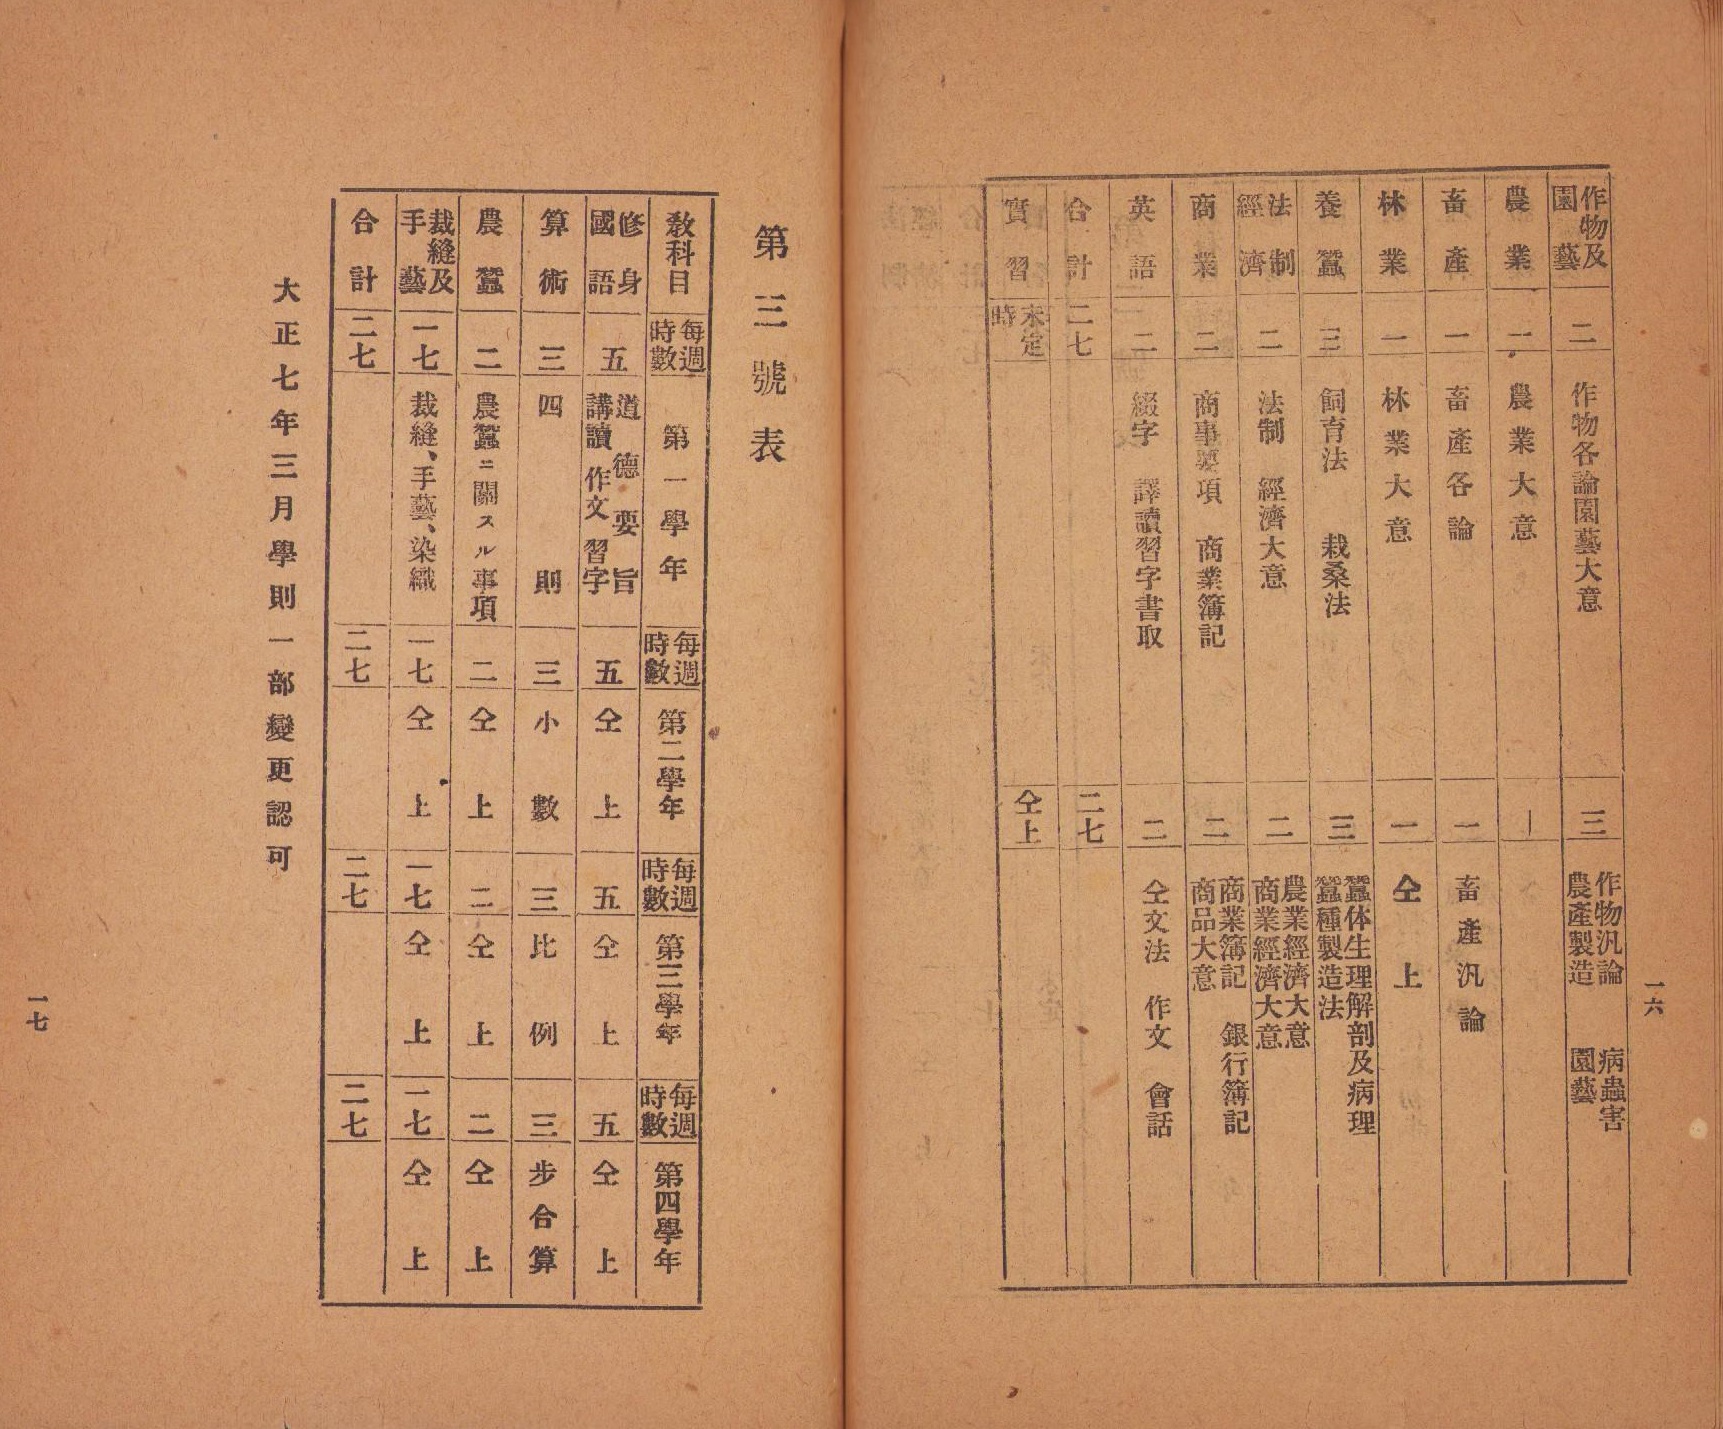 作物及園藝 二 作物各論園藝大意 三 作物汎論 病蟲害 農產製造 園藝
農業 一 農業大意 ｜
畜產 一 畜產各論 一 畜產汎論
林業 一 林業大意 一 仝上
養蠶 三 飼育法 栽桑法 三 蠶体生理解剖及病理 蠶種製造法
法制經濟 二 法制 經濟大意 二 農業經濟大意 商業經濟大意
商業 二 商事要項 商業簿記 二 商業簿記 銀行簿記 商品大意
英語 二 綴字 譯讀習字書取 二 仝文法 作文 會話
合計 二七 二七
實習 未定時 仝上
一六
第三號表
敎科目 每週時數 第一學年 每週時數 第二學年 每週時數 第三學年 每週時數 第四學年
修身國語 五 道德要旨 講讀 作文 習字 五 仝上 五 仝上 五 仝上
算術 三 四則 三 小數 三 比例 三 步合算
農蠶 二 農蠶ニ關スル事項 二 仝上 二 仝上 二 仝上
裁縫及手藝 一七 裁縫、手藝、染織 一七 仝上 一七 仝上 一七 仝上
合計 二七 二七 二七 二七
大正七年三月學則一部變更認可
一七